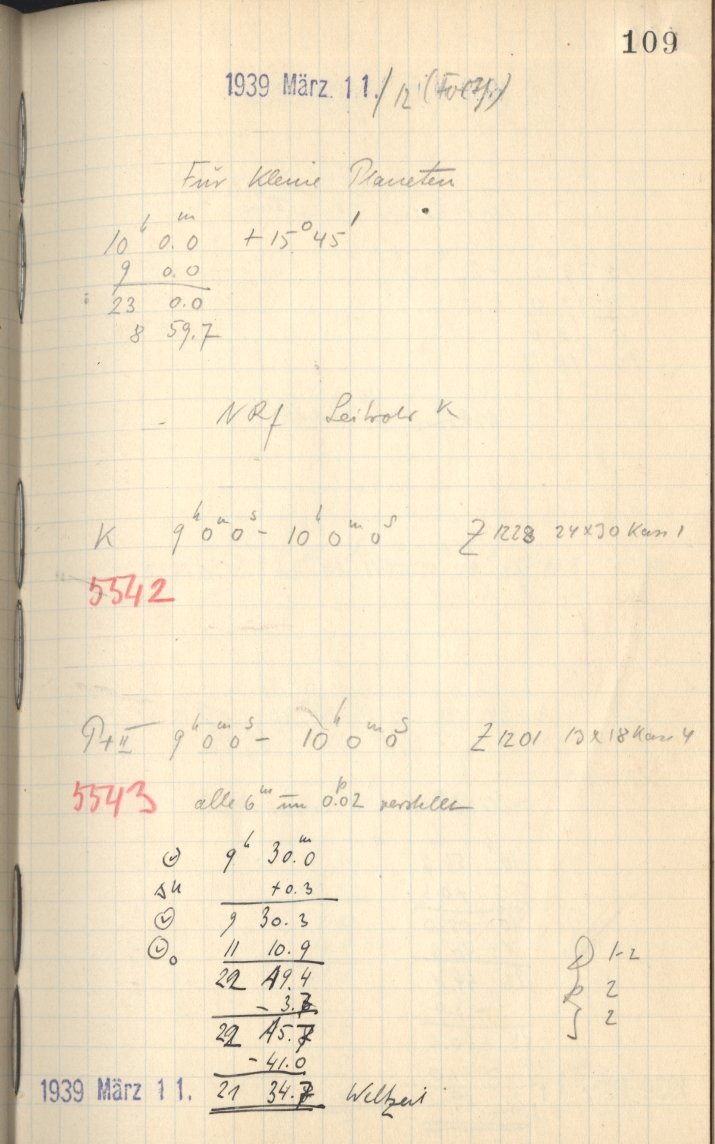 109
1939 März 11./12 (Forts.)
Für Kleine Planeten
10ʰ 0.0ᵐ +15° 45'
9 0.0
23 0.0
8 59.7
NRf Leitrohr K
K 9ʰ 0ᵐ 0ˢ - 10ʰ 0ᵐ 0ˢ Z 1228 24x30 Kass 1
5542
P+II 9ʰ 0ᵐ 0ˢ - 10ʰ 0ᵐ 0ˢ Z 1201 13x18 Kass 4
5543 alle 6ᵐ um 0ᵖ.02 verstellt
9ʰ 30.0ᵐ
Δu +0.3
9 30.3
11 10.9 1-2
22 19.4 2
- 3.7 2
22 15.7
- 41.0
1939 März 11. 21 34.7 Weltzeit